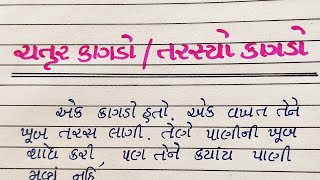 ચતુર કાગડો / તરસ્યો કાગડો
એક કાગડો હતો. એક વખત તેને
ખૂબ તરસ લાગી. તેણે પાણીની ખૂબ
શોધ કરી, પણ તેને કયાંય પાણી
મળ્યું નહિ.